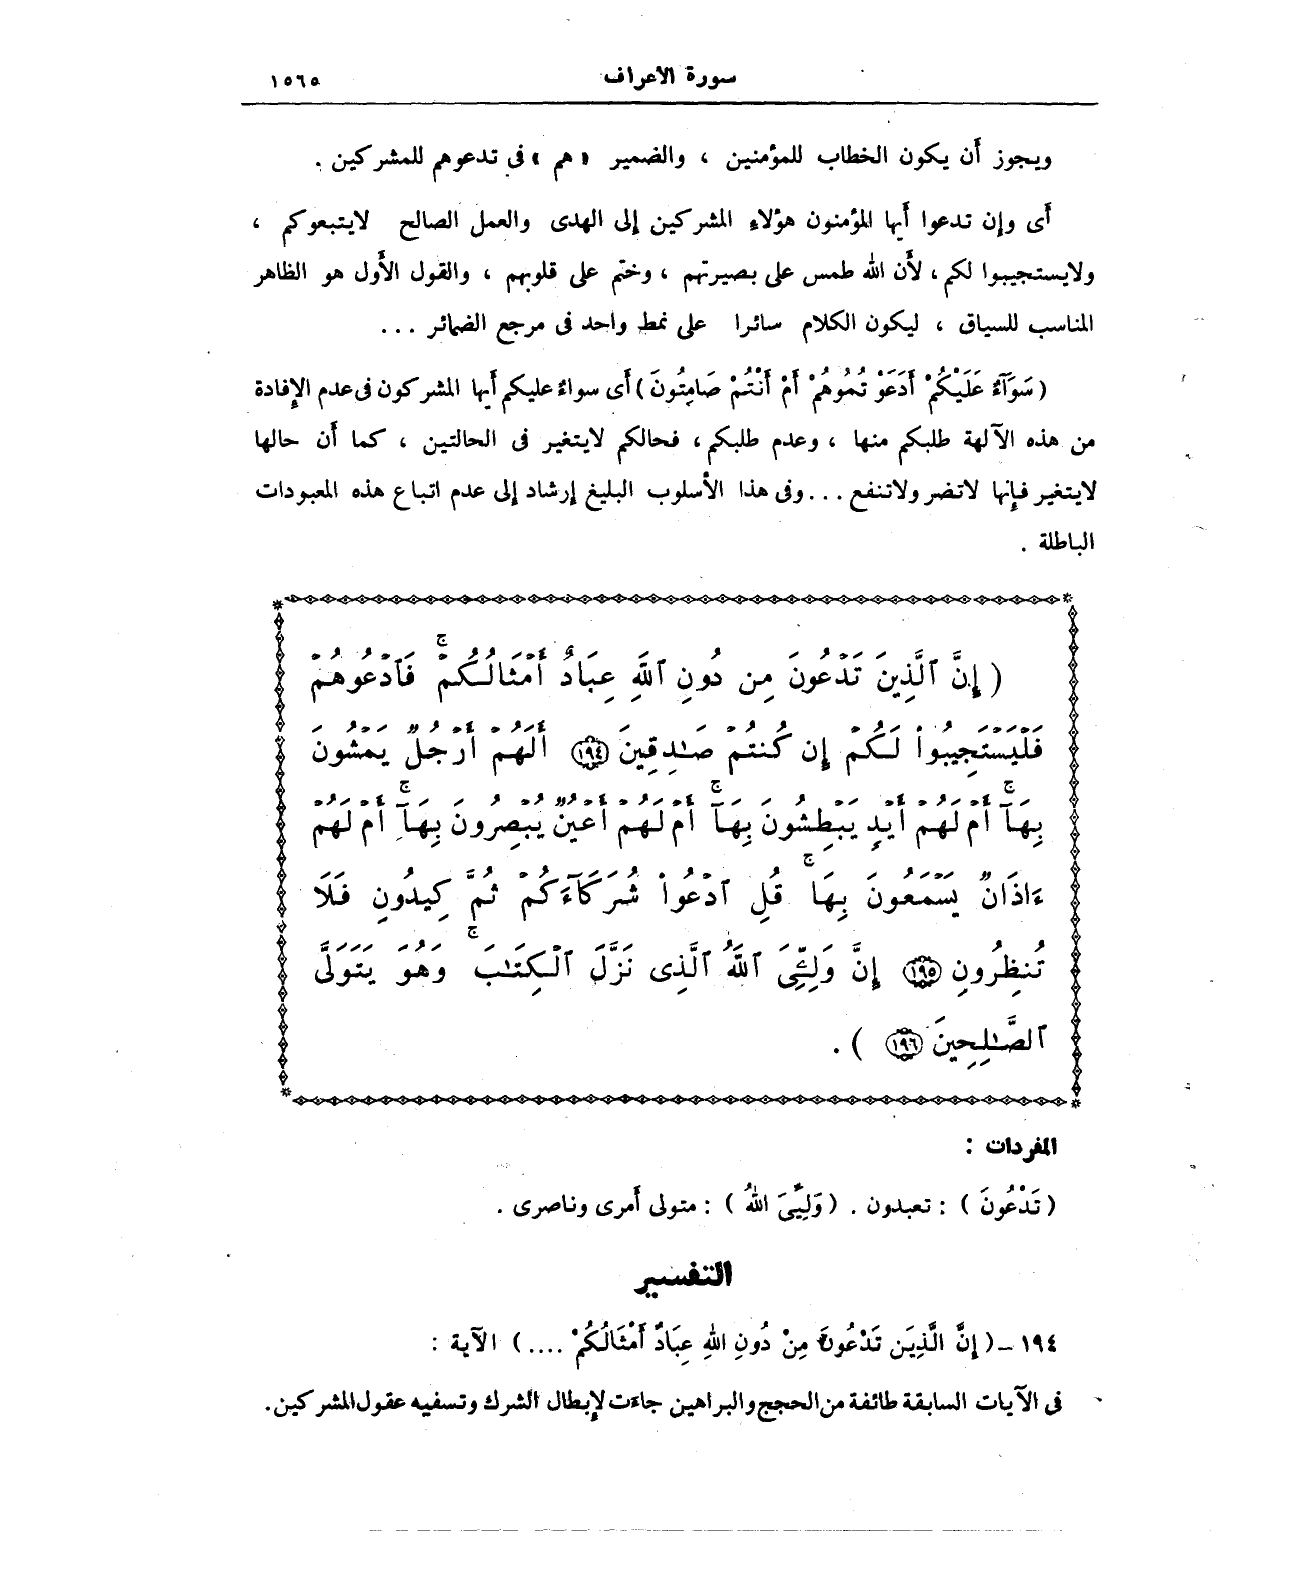 سورة الأعراف ١٥٦٥
ويجوز أن يكون الخطاب للمؤمنين ، والضمير « هم » فى تدعوهم للمشركين .
أى وإن تدعوا أيها المؤمنون هؤلاء المشركين إلى الهدى والعمل الصالح لايتبعوكم ،
ولايستجيبوا لكم ، لأن الله طمس على بصيرتهم ، وختم على قلوبهم ، والقول الأول هو الظاهر
المناسب للسياق ، ليكون الكلام سائرا على نمط واحد فى مرجع الضمائر ...
( سَوَآءٌ عَلَيْكُمْ أَدَعَوْتُمُوهُمْ أَمْ أَنْتُمْ صَامِتُونَ ) أى سواءٌ عليكم أيها المشركون فى عدم الإفادة
من هذه الآلهة طلبكم منها ، وعدم طلبكم ، فحالكم لايتغير فى الحالتين ، كما أن حالها
لايتغير فإنها لاتضر ولاتنفع ... وفى هذا الأسلوب البليغ إرشاد إلى عدم اتباع هذه المعبودات
الباطلة .
( إِنَّ ٱلَّذِينَ تَدْعُونَ مِن دُونِ ٱللَّهِ عِبَادٌ أَمْثَالُكُمْ ۚ فَٱدْعُوهُمْ
فَلْيَسْتَجِيبُوا۟ لَكُمْ إِن كُنتُمْ صَـٰدِقِينَ ﴿١٩٤﴾ أَلَهُمْ أَرْجُلٌ يَمْشُونَ
بِهَآ ۚ أَمْ لَهُمْ أَيْدٍ يَبْطِشُونَ بِهَآ ۚ أَمْ لَهُمْ أَعْيُنٌ يُبْصِرُونَ بِهَآ ۚ أَمْ لَهُمْ
ءَاذَانٌ يَسْمَعُونَ بِهَا ۚ قُلِ ٱدْعُوا۟ شُرَكَآءَكُمْ ثُمَّ كِيدُونِ فَلَا
تُنظِرُونِ ﴿١٩٥﴾ إِنَّ وَلِـِّۧىَ ٱللَّهُ ٱلَّذِى نَزَّلَ ٱلْكِتَـٰبَ ۚ وَهُوَ يَتَوَلَّى
ٱلصَّـٰلِحِينَ ﴿١٩٦﴾ ) .
المفردات :
( تَدْعُونَ ) : تعبدون . ( وَلِيِّيَ اللهُ ) : متولى أمرى وناصرى .
التفسير
١٩٤ – ( إِنَّ الَّذِينَ تَدْعُونَ مِنْ دُونِ اللهِ عِبَادٌ أَمْثَالُكُمْ .... ) الآية :
فى الآيات السابقة طائفة من الحجج والبراهين جاءت لإبطال الشرك وتسفيه عقول المشركين .